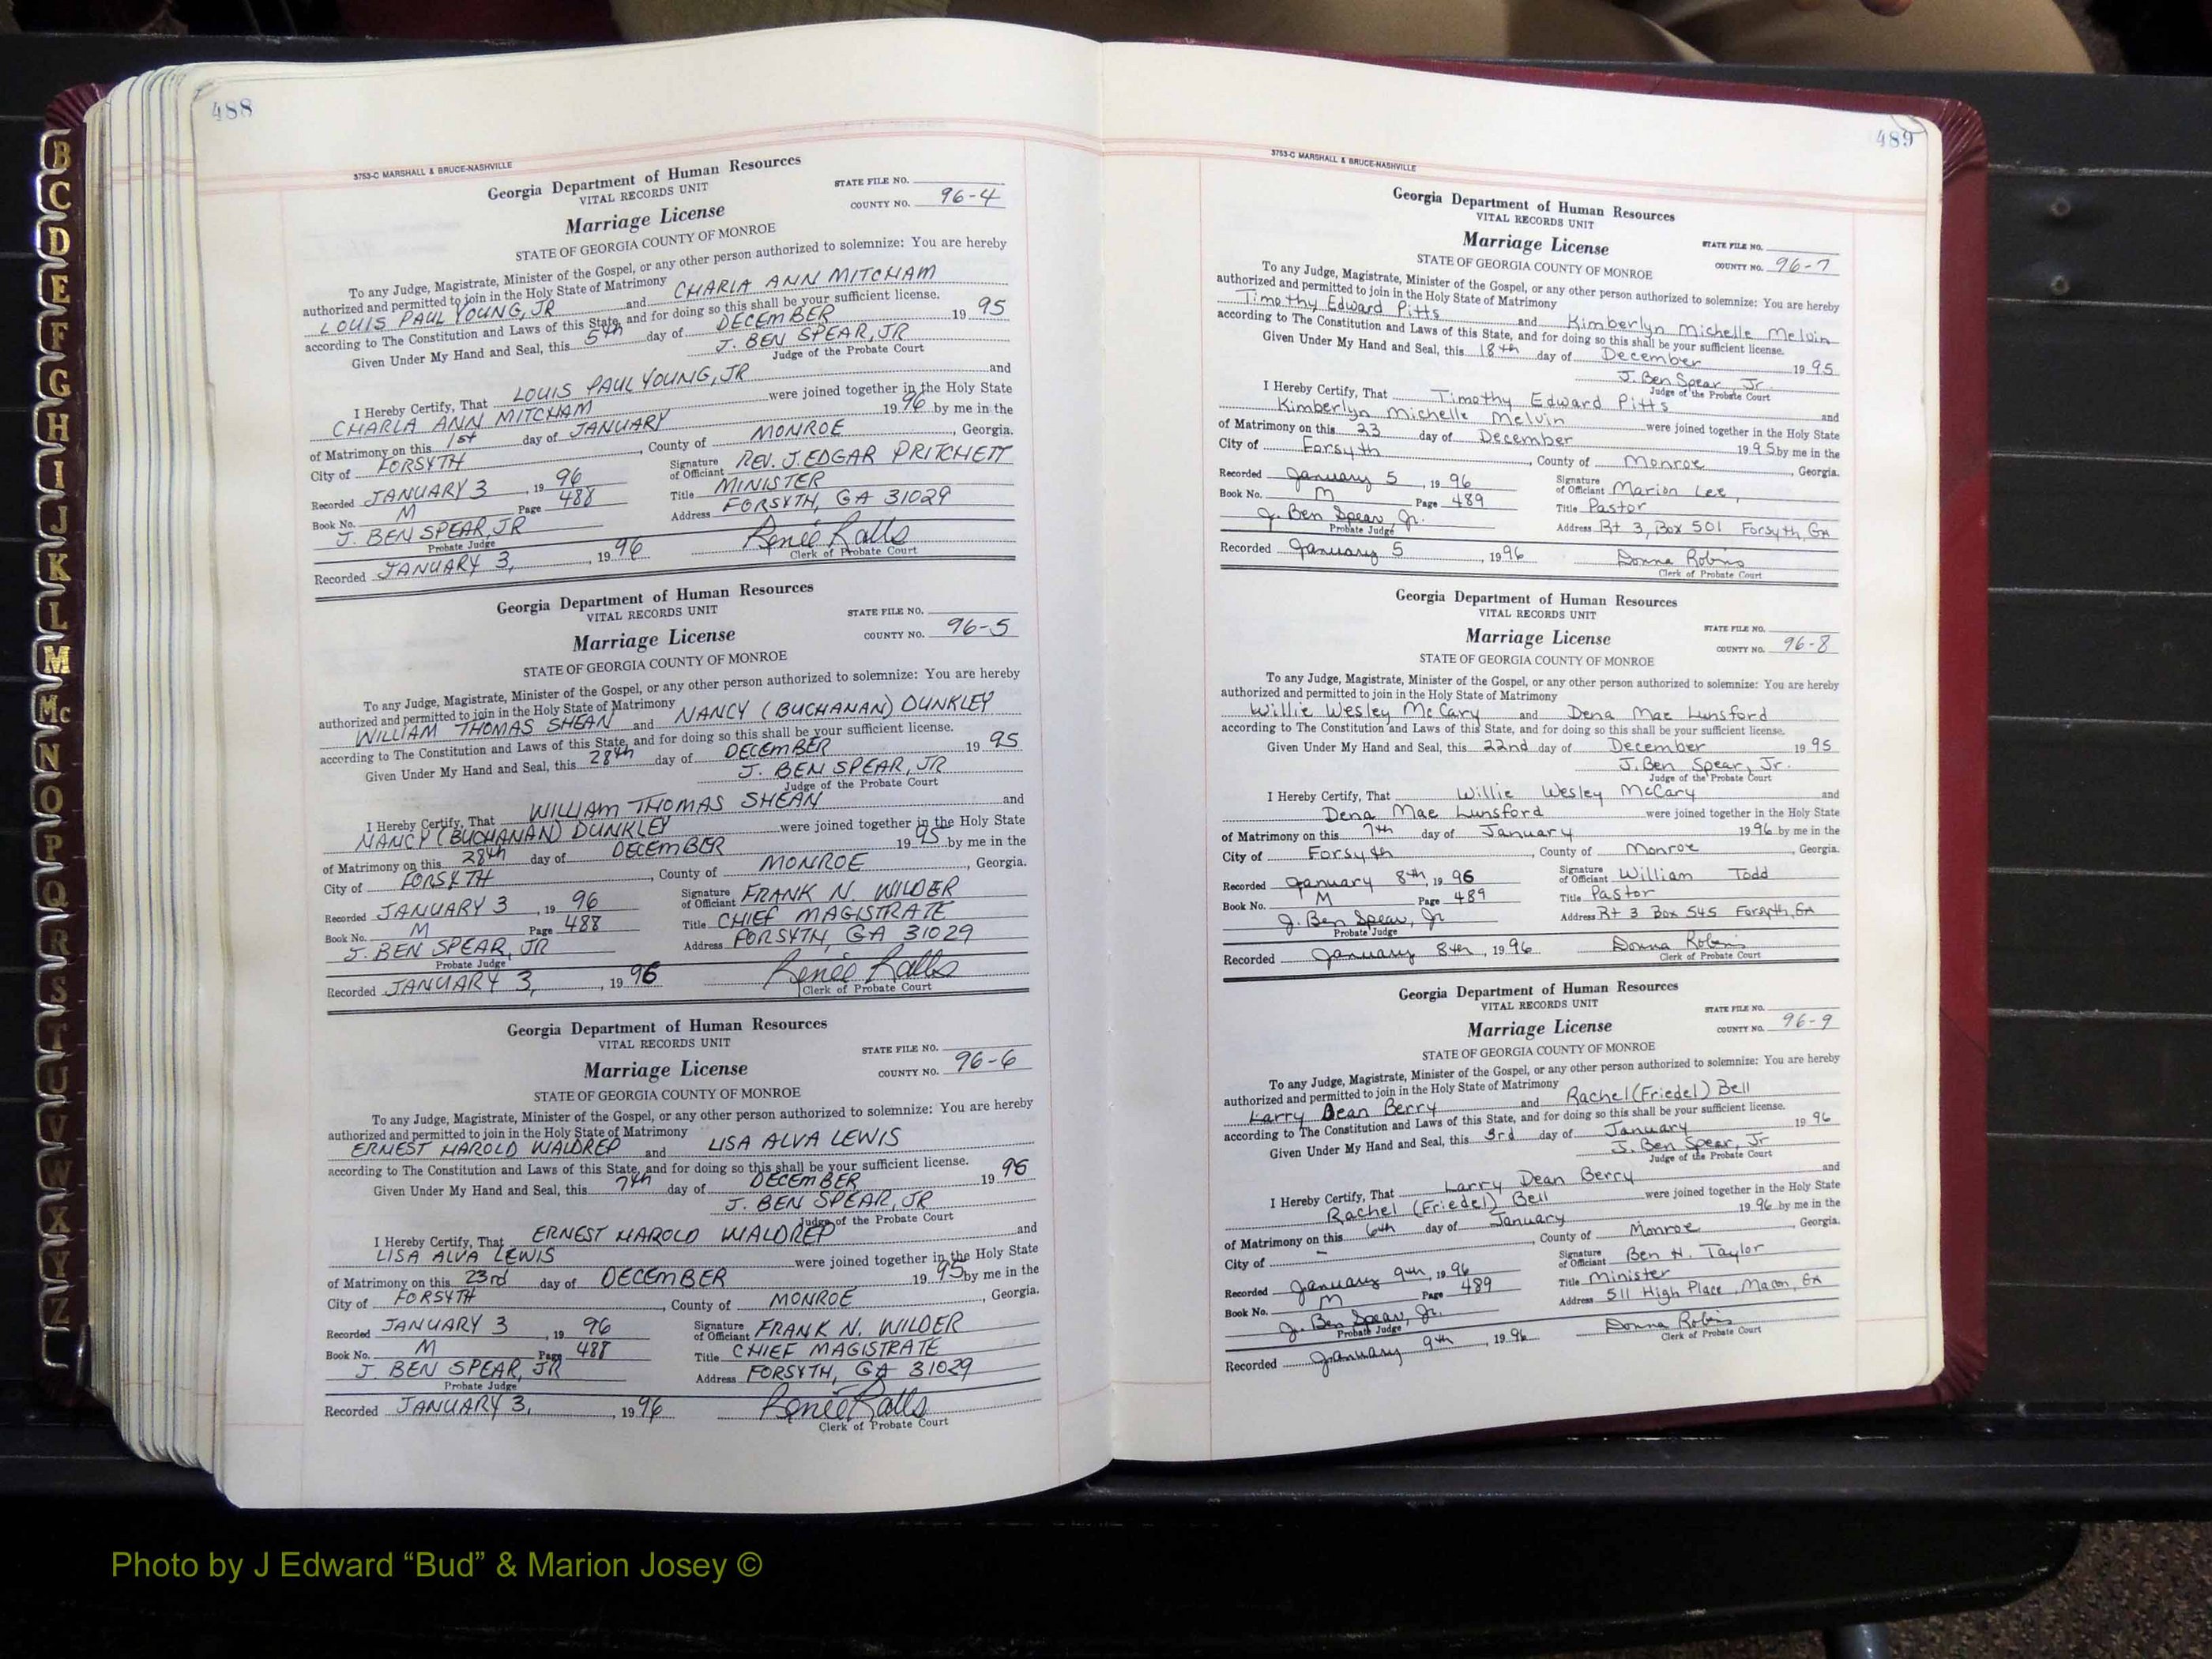 B
C
D
E
F
G
H
I
J
K
L
M
Mc
N
O
P
Q
R
S
T
U
V
W
X
Y
Z
488
3753-C MARSHALL & BRUCE-NASHVILLE
Georgia Department of Human Resources
VITAL RECORDS UNIT
STATE FILE NO.
Marriage License
COUNTY NO. 96-4
STATE OF GEORGIA COUNTY OF MONROE
To any Judge, Magistrate, Minister of the Gospel, or any other person authorized to solemnize: You are hereby
authorized and permitted to join in the Holy State of Matrimony
LOUIS PAUL YOUNG, JR and CHARLA ANN MITCHAM
according to The Constitution and Laws of this State, and for doing so this shall be your sufficient license.
Given Under My Hand and Seal, this 5th day of DECEMBER 19 95
J. BEN SPEAR, JR
Judge of the Probate Court
I Hereby Certify, That LOUIS PAUL YOUNG, JR and
CHARLA ANN MITCHAM were joined together in the Holy State
of Matrimony on this 1st day of JANUARY 19 96 by me in the
City of FORSYTH, County of MONROE, Georgia.
Recorded JANUARY 3, 19 96 Signature of Officiant REV. J. EDGAR PRITCHETT
Book No. M Page 488 Title MINISTER
J. BEN SPEAR, JR Address FORSYTH, GA 31029
Probate Judge
Recorded JANUARY 3, 19 96 Renée Ralls
Clerk of Probate Court
Georgia Department of Human Resources
VITAL RECORDS UNIT
STATE FILE NO.
Marriage License
COUNTY NO. 96-5
STATE OF GEORGIA COUNTY OF MONROE
To any Judge, Magistrate, Minister of the Gospel, or any other person authorized to solemnize: You are hereby
authorized and permitted to join in the Holy State of Matrimony
WILLIAM THOMAS SHEAN and NANCY (BUCHANAN) DUNKLEY
according to The Constitution and Laws of this State, and for doing so this shall be your sufficient license.
Given Under My Hand and Seal, this 28th day of DECEMBER 19 95
J. BEN SPEAR, JR
Judge of the Probate Court
I Hereby Certify, That WILLIAM THOMAS SHEAN and
NANCY (BUCHANAN) DUNKLEY were joined together in the Holy State
of Matrimony on this 28th day of DECEMBER 19 95 by me in the
City of FORSYTH, County of MONROE, Georgia.
Recorded JANUARY 3, 19 96 Signature of Officiant FRANK N. WILDER
Book No. M Page 488 Title CHIEF MAGISTRATE
J. BEN SPEAR, JR Address FORSYTH, GA 31029
Probate Judge
Recorded JANUARY 3, 19 96 Renée Ralls
Clerk of Probate Court
Georgia Department of Human Resources
VITAL RECORDS UNIT
STATE FILE NO.
Marriage License
COUNTY NO. 96-6
STATE OF GEORGIA COUNTY OF MONROE
To any Judge, Magistrate, Minister of the Gospel, or any other person authorized to solemnize: You are hereby
authorized and permitted to join in the Holy State of Matrimony
ERNEST HAROLD WALDREP and LISA ALVA LEWIS
according to The Constitution and Laws of this State, and for doing so this shall be your sufficient license.
Given Under My Hand and Seal, this 7th day of DECEMBER 19 95
J. BEN SPEAR, JR
Judge of the Probate Court
I Hereby Certify, That ERNEST HAROLD WALDREP and
LISA ALVA LEWIS were joined together in the Holy State
of Matrimony on this 23rd day of DECEMBER 19 95 by me in the
City of FORSYTH, County of MONROE, Georgia.
Recorded JANUARY 3, 19 96 Signature of Officiant FRANK N. WILDER
Book No. M Page 488 Title CHIEF MAGISTRATE
J. BEN SPEAR, JR Address FORSYTH, GA 31029
Probate Judge
Recorded JANUARY 3, 19 96 Renée Ralls
Clerk of Probate Court
489
3753-C MARSHALL & BRUCE-NASHVILLE
Georgia Department of Human Resources
VITAL RECORDS UNIT
Marriage License STATE FILE NO.
STATE OF GEORGIA COUNTY OF MONROE COUNTY NO. 96-7
To any Judge, Magistrate, Minister of the Gospel, or any other person authorized to solemnize: You are hereby
authorized and permitted to join in the Holy State of Matrimony
Timothy Edward Pitts and Kimberlyn Michelle Melvin
according to The Constitution and Laws of this State, and for doing so this shall be your sufficient license.
Given Under My Hand and Seal, this 18th day of December 19 95
J. Ben Spear, Jr.
Judge of the Probate Court
I Hereby Certify, That Timothy Edward Pitts and
Kimberlyn Michelle Melvin were joined together in the Holy State
of Matrimony on this 23 day of December 19 95 by me in the
City of Forsyth, County of Monroe, Georgia.
Recorded January 5, 19 96 Signature of Officiant Marion Lee,
Book No. M Page 489 Title Pastor
J. Ben Spear Jr. Address Rt 3, Box 501 Forsyth, GA
Probate Judge
Recorded January 5, 19 96 Donna Robins
Clerk of Probate Court
Georgia Department of Human Resources
VITAL RECORDS UNIT
STATE FILE NO.
Marriage License
COUNTY NO. 96-8
STATE OF GEORGIA COUNTY OF MONROE
To any Judge, Magistrate, Minister of the Gospel, or any other person authorized to solemnize: You are hereby
authorized and permitted to join in the Holy State of Matrimony
Willie Wesley McCary and Dena Mae Lunsford
according to The Constitution and Laws of this State, and for doing so this shall be your sufficient license.
Given Under My Hand and Seal, this 22nd day of December 19 95
J. Ben Spear, Jr.
Judge of the Probate Court
I Hereby Certify, That Willie Wesley McCary and
Dena Mae Lunsford were joined together in the Holy State
of Matrimony on this 7th day of January 19 96 by me in the
City of Forsyth, County of Monroe, Georgia.
Recorded January 8th, 19 96 Signature of Officiant William Todd
Book No. M Page 489 Title Pastor
J. Ben Spear, Jr Address Rt 3 Box 545 Forsyth, GA
Probate Judge
Recorded January 8th, 19 96 Donna Robins
Clerk of Probate Court
Georgia Department of Human Resources
VITAL RECORDS UNIT
STATE FILE NO.
Marriage License
COUNTY NO. 96-9
STATE OF GEORGIA COUNTY OF MONROE
To any Judge, Magistrate, Minister of the Gospel, or any other person authorized to solemnize: You are hereby
authorized and permitted to join in the Holy State of Matrimony
Larry Dean Berry and Rachel (Friedel) Bell
according to The Constitution and Laws of this State, and for doing so this shall be your sufficient license.
Given Under My Hand and Seal, this 3rd day of January 19 96
J. Ben Spear, Jr
Judge of the Probate Court
I Hereby Certify, That Larry Dean Berry and
Rachel (Friedel) Bell were joined together in the Holy State
of Matrimony on this 6th day of January 19 96 by me in the
City of –, County of Monroe, Georgia.
Recorded January 9th, 19 96 Signature of Officiant Ben H. Taylor
Book No. M Page 489 Title Minister
J. Ben Spear, Jr. Address 511 High Place, Macon, GA
Probate Judge
Recorded January 9th, 19 96 Donna Robins
Clerk of Probate Court
Photo by J Edward “Bud” & Marion Josey ©